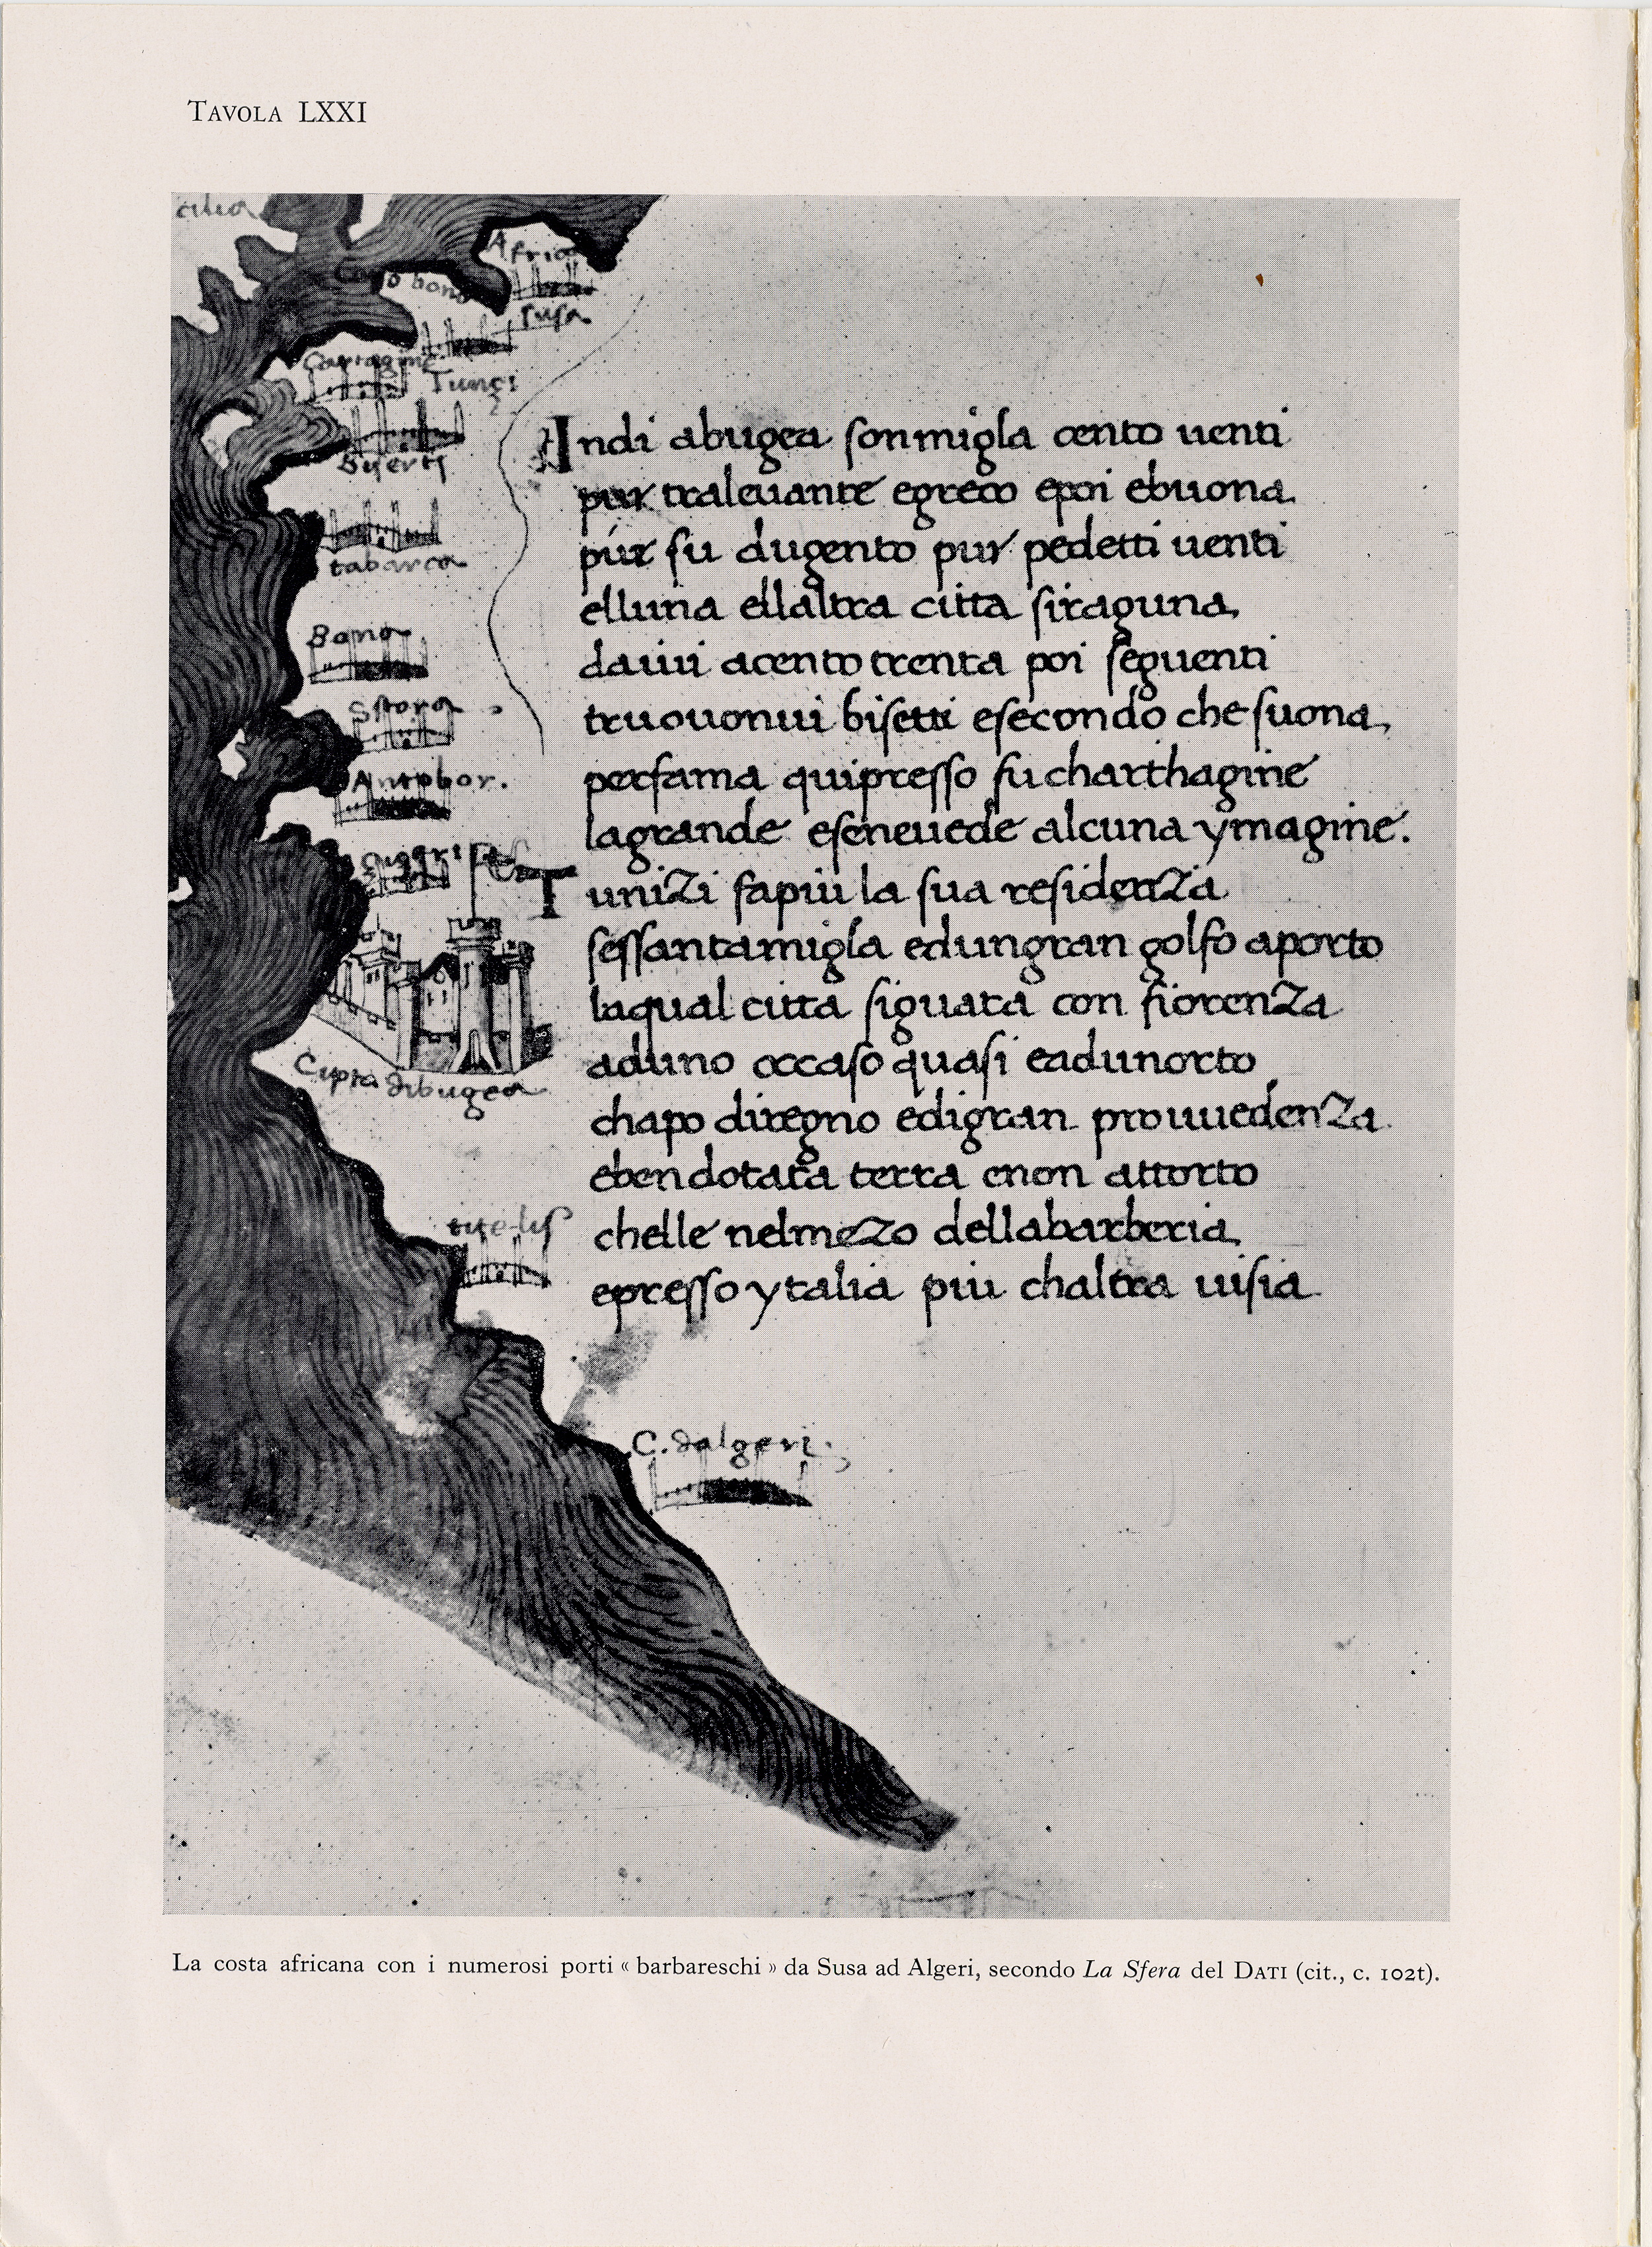 TAVOLA LXXI
cilia
Africa
Capo bono
susa
Cartagine
Tunçi
Biserti
tabarca
Bona
Stora
Antobor.
Cupta dibugea
C. dalgeri.
Indi abugea son migla cento uenti
pur traleuante egreco epoi ebuona
pur su dugento pur pedetti uenti
elluna ellaltra citta siraguna
daiui acento trenta poi seguenti
truouonui bisetti esecondo che suona
perfama quipresso fu charthagine
lagrande eseneuede alcuna ymagine.
Tunizi fapiu la sua residenza
sessantamigla edungran golfo aporto
laqual citta siguata con fiorenza
aduno occaso quasi eadunorto
chapo diregno edigran prouuedenza
eben dotata terra enon attorto
chelle nelmezo dellabarberia
epresso ytalia piu chaltra uisia
La costa africana con i numerosi porti « barbareschi » da Susa ad Algeri, secondo La Sfera del DATI (cit., c. 102t).